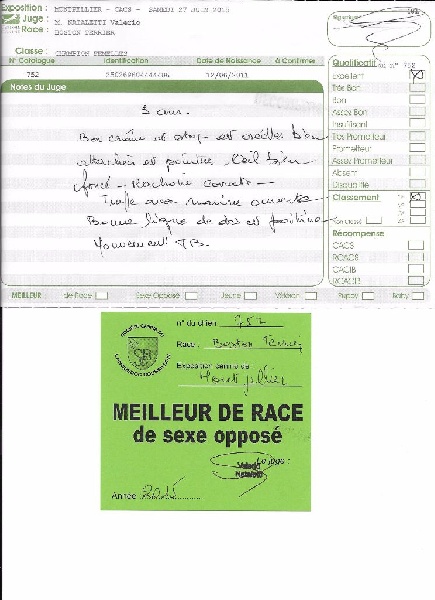 Exposition : MONTPELLIER - CACS - SAMEDI 27 JUIN 2015
Juge : M. NATALETTI Valerio
Race : BOSTON TERRIER
Classe : CHAMPION FEMELLES
N° Catalogue Identification Date de Naissance à Confirmer
752 12/06/2011
Notes du Juge
3 ans.
Bon crâne et stop - et oreilles bien
attachées et
L'oeil bien
foncé - Machoire correcte -
Truffe avec narines ouvertes -
Bonne ligne de dos et poitrine
Mouvement TB.
Signature
Qualificatif du n° 752
Excellent
Très Bon
Bon
Assez Bon
Insuffisant
Très Prometteur
Prometteur
Assez Prometteur
Absent
Disqualifié
Classement
Récompense
CACS
RCACS
CACIB
RCACIB
MEILLEUR : de Race Sexe Opposé Jeune Vétéran Puppy Baby
n° du chien : 752
Race : Boston Terrier
Exposition canine de
Montpellier
MEILLEUR DE RACE
de sexe opposé
Le Juge :
Valerio
Nataletti
Année 2015